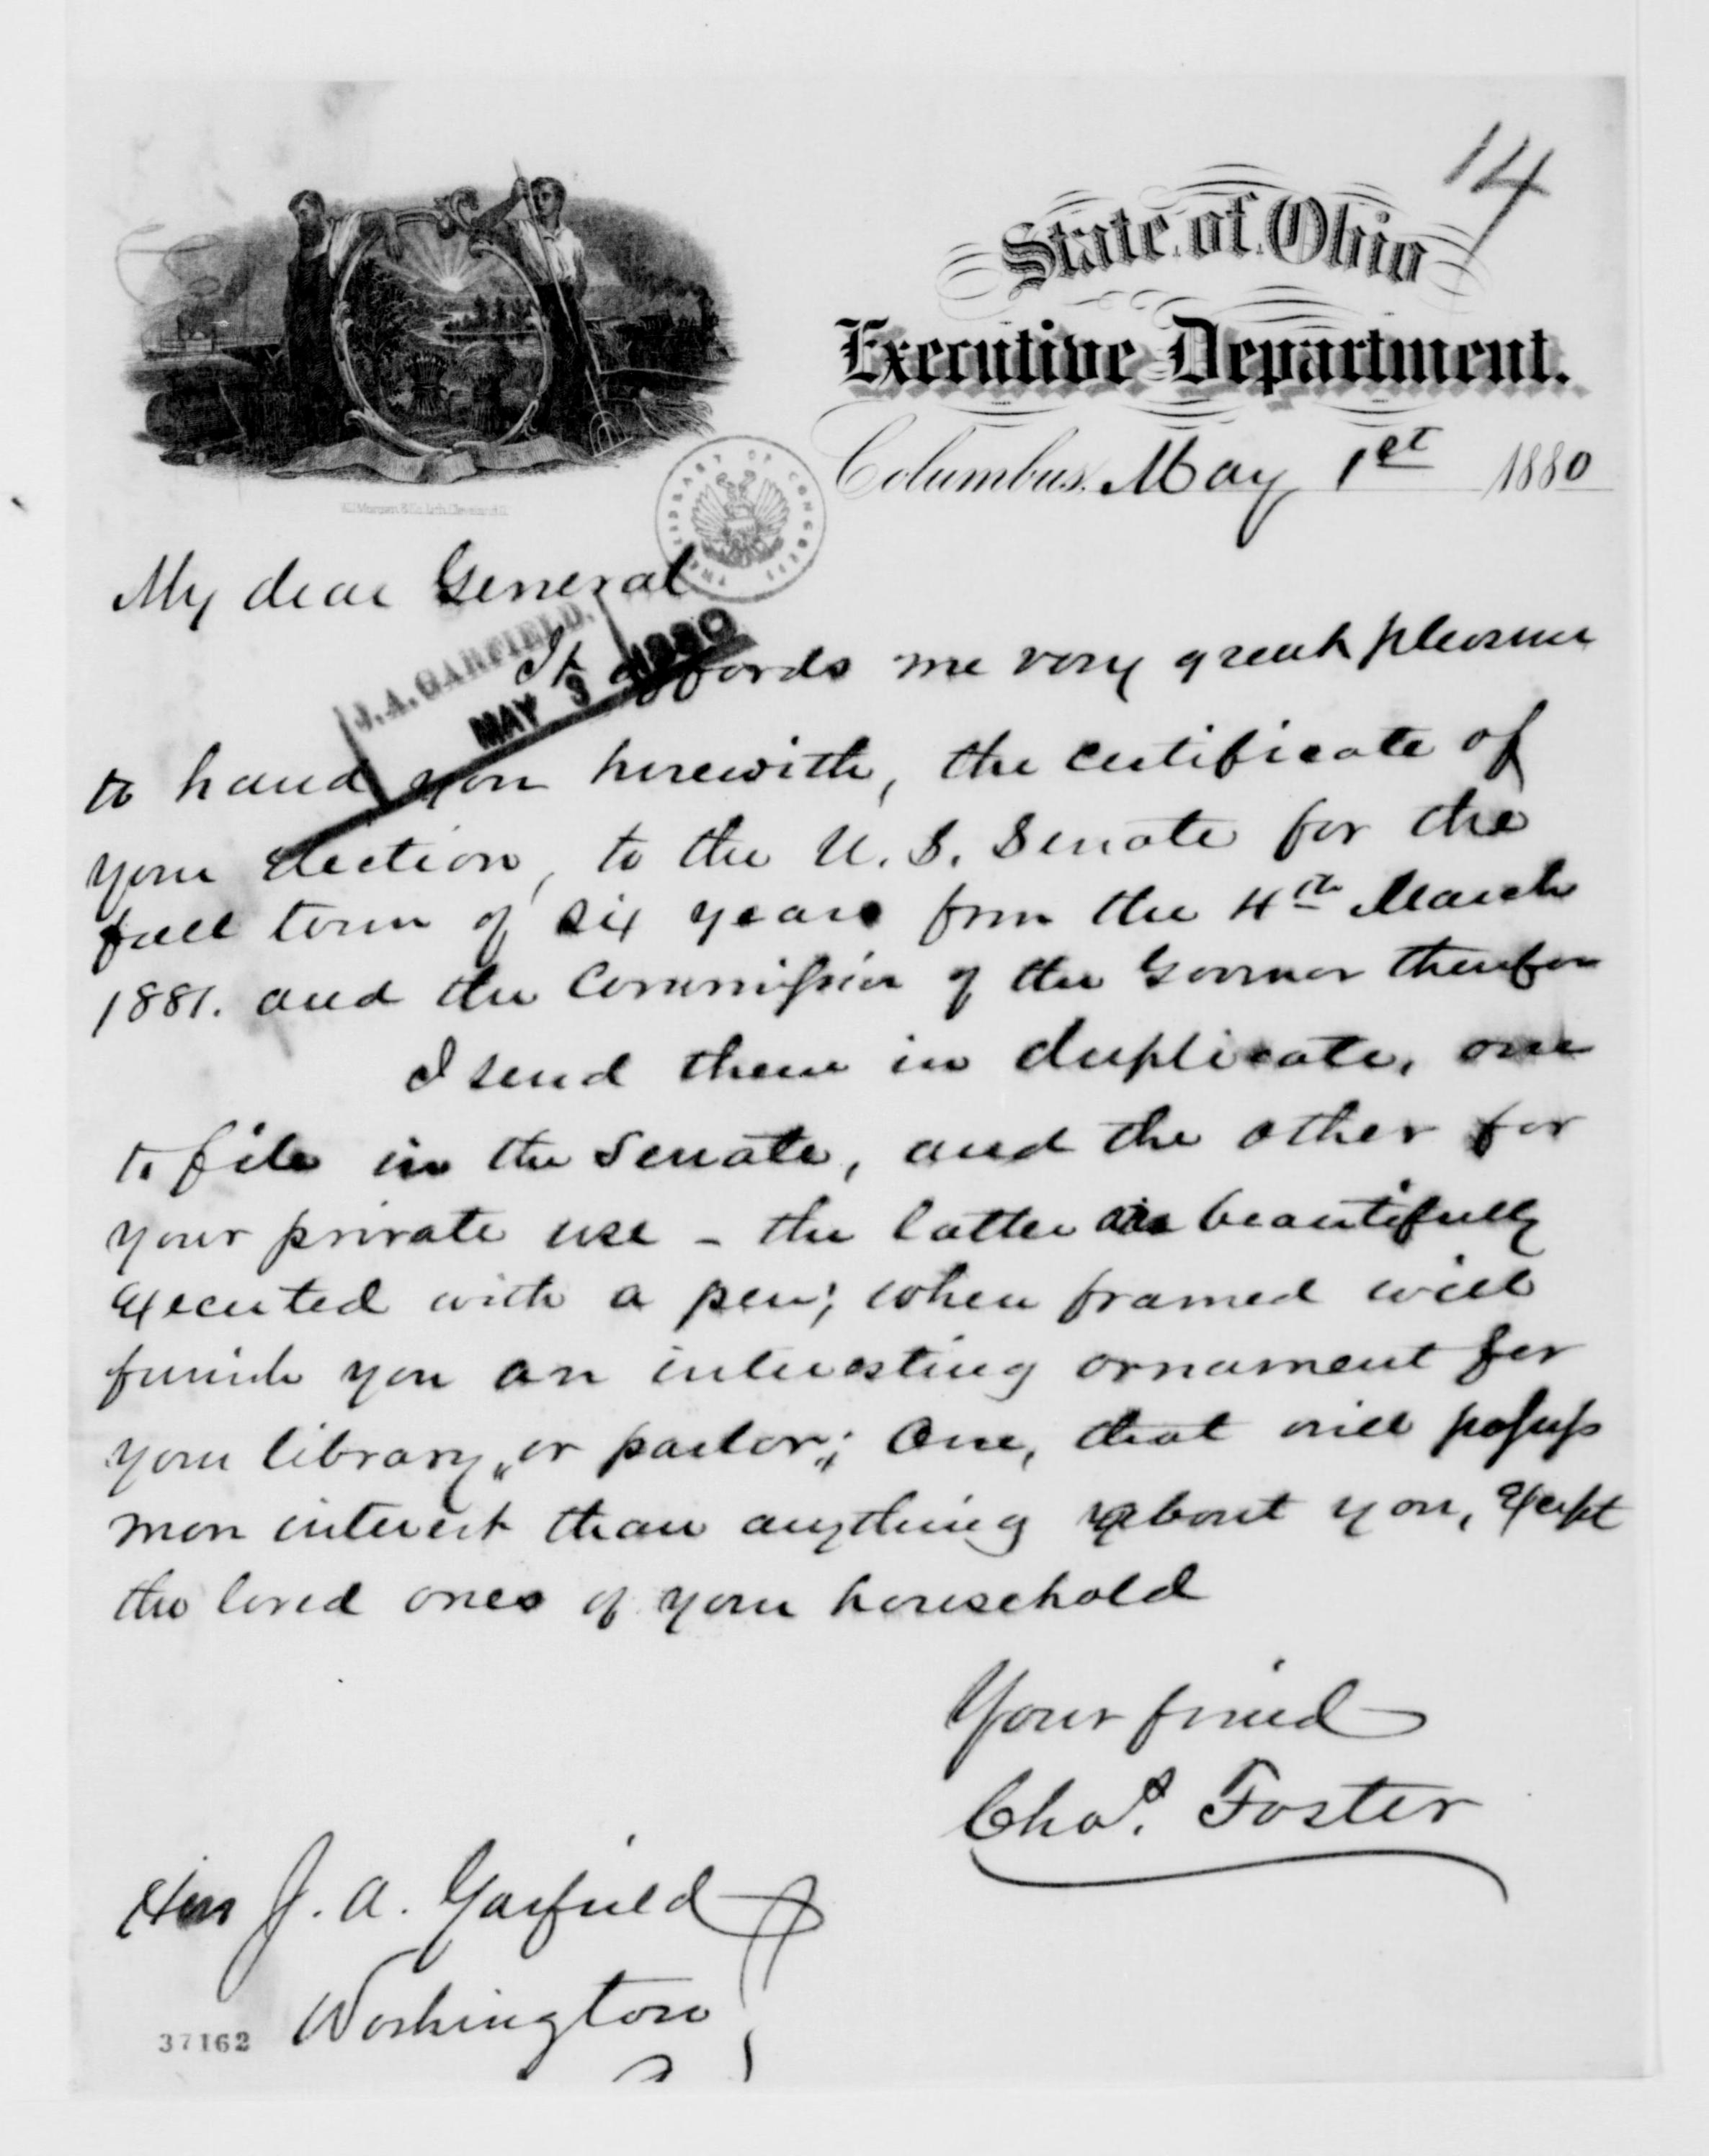 14
State of Ohio
Executive Department.
Columbus, May 1st 1880
THE LIBRARY OF CONGRESS
My dear General
J. A. GARFIELD.
MAY 3 1880
It affords me very great pleasure
to hand you herewith, the certificate of
your election, to the U. S. Senate for the
full term of six years from the 4th March
1881. and the Commission of the Governor therefor
I send them in duplicate, one
to file in the Senate, and the other for
your private use - the latter is beautifully
executed with a pen; when framed will
furnish you an interesting ornament for
your library, or parlor; One, that will possess
more interest than anything about you, except
the loved ones of your household
Your friend
Chas. Foster
Hon J. A. Garfield
Washington
37162